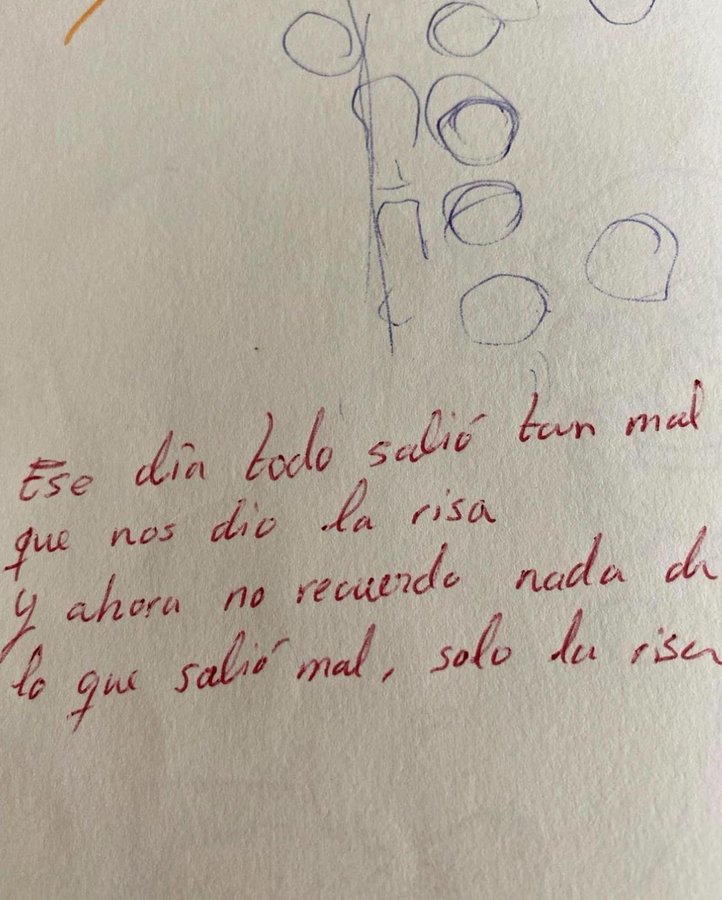 Ese día todo salió tan mal
que nos dio la risa
y ahora no recuerdo nada de
lo que salió mal, solo la risa